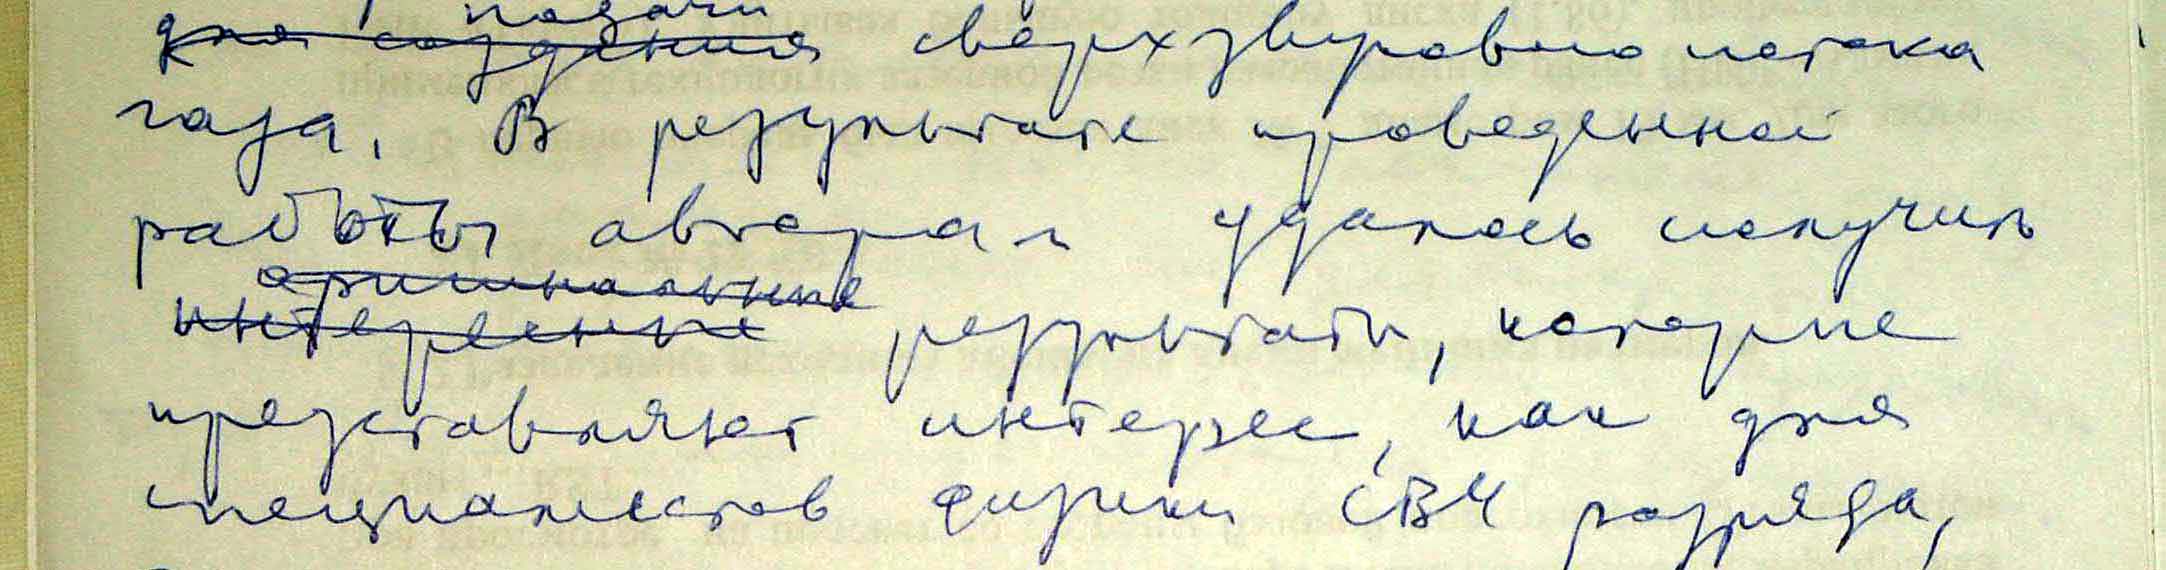 подачи
для создания сверхзвукового потока
газа. В результате проведенной
работы авторам удалось получить
оригинальные
интересные результаты, которые
представляют интерес, как для
специалистов физики СВЧ разряда,